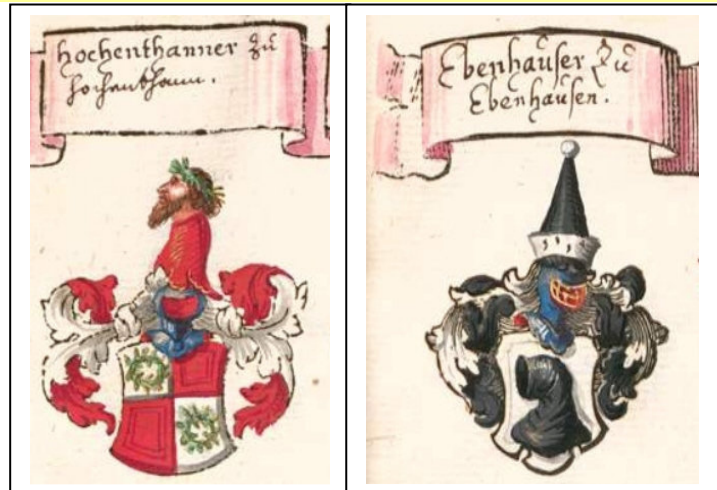 Hochenthanner zů
Hochenthann.
Ebenhauser Zů
Ebenhausen.